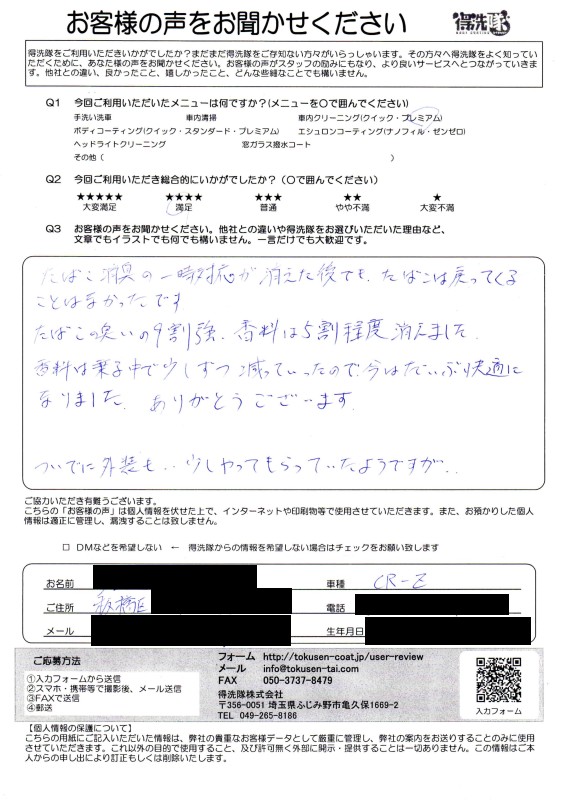 お客様の声をお聞かせください
得洗隊
得洗隊をご利用いただきいかがでしたか?まだまだ得洗隊をご存知ない方々がいらっしゃいます。その方々へ得洗隊をよく知っていただくために、あなた様の声をお聞かせください。お客様の声がスタッフの励みにもなり、より良いサービスへとつながっていきます。他社との違い、良かったこと、嬉しかったこと、どんな些細なことでも構いません。
Q1 今回ご利用いただいたメニューは何ですか?(メニューを○で囲んでください)
手洗い洗車 車内清掃 車内クリーニング(クイック・プレミアム)
ボディコーティング(クイック・スタンダード・プレミアム) エシュロンコーティング(ナノフィル・ゼンゼロ)
ヘッドライトクリーニング 窓ガラス撥水コート
その他( )
Q2 今回ご利用いただき総合的にいかがでしたか?(○で囲んでください)
★★★★★ ★★★★ ★★★ ★★ ★
大変満足 満足 普通 やや不満 大変不満
Q3 お客様の声をお聞かせください。他社との違いや得洗隊をお選びいただいた理由など、
文章でもイラストでも何でも構いません。一言だけでも大歓迎です。
たばこ消臭の一時対応が消えた後でも、たばこは戻ってくる
ことはなかったです
たばこの臭いの9割強、香料は5割程度消えました.
香料は 中で少しずつ減っていったので、今はだいぶ快適に
なりました. ありがとうございます.
ついでに外装も..少しやってもらっていたようですが..
ご協力いただき有難うございます。
こちらの「お客様の声」は個人情報を伏せた上で、インターネットや印刷物等で使用させていただきます。また、お預かりした個人
情報は適正に管理し、漏洩することは致しません。
□ DMなどを希望しない ← 得洗隊からの情報を希望しない場合はチェックをお願い致します
お名前 車種 CR-Z
ご住所 板橋区 電話
メール 生年月日
ご応募方法
①入力フォームから送信
②スマホ・携帯等で撮影後、メール送信
③FAXで送信
④郵送
フォーム http://tokusen-coat.jp/user-review
メール info@tokusen-tai.com
FAX 050-3737-8479
得洗隊株式会社
〒356-0051 埼玉県ふじみ野市亀久保1669-2
TEL 049-265-8186
入力フォーム
【個人情報の保護について】
こちらの用紙にご記入いただいた情報は、弊社の貴重なお客様データとして厳重に管理し、弊社の案内をお送りすることのみに使用
させていただきます。これ以外の目的で使用すること、及び許可無く外部に開示・提供することは一切ありません。この情報はご本
人からの申し出により訂正もしくは削除いたします。